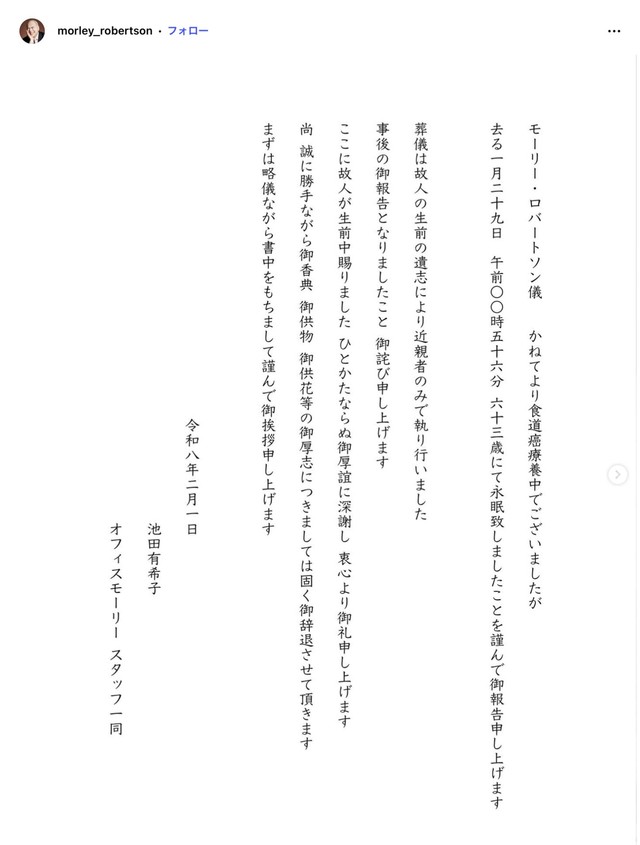 morley_robertson • フォロー
モーリー・ロバートソン儀　かねてより食道癌療養中でございましたが
去る一月二十九日　午前〇〇時五十六分 六十三歳にて永眠致しましたことを謹んで御報告申し上げます
葬儀は故人の生前の遺志により近親者のみで執り行いました
事後の御報告となりましたこと 御詫び申し上げます
ここに故人が生前中賜りました ひとかたならぬ御厚誼に深謝し 衷心より御礼申し上げます
尚 誠に勝手ながら御香典 御供物 御供花等の御厚志につきましては固く御辞退させて頂きます
まずは略儀ながら書中をもちまして謹んで御挨拶申し上げます
令和八年二月一日
池田有希子
オフィスモーリー スタッフ一同